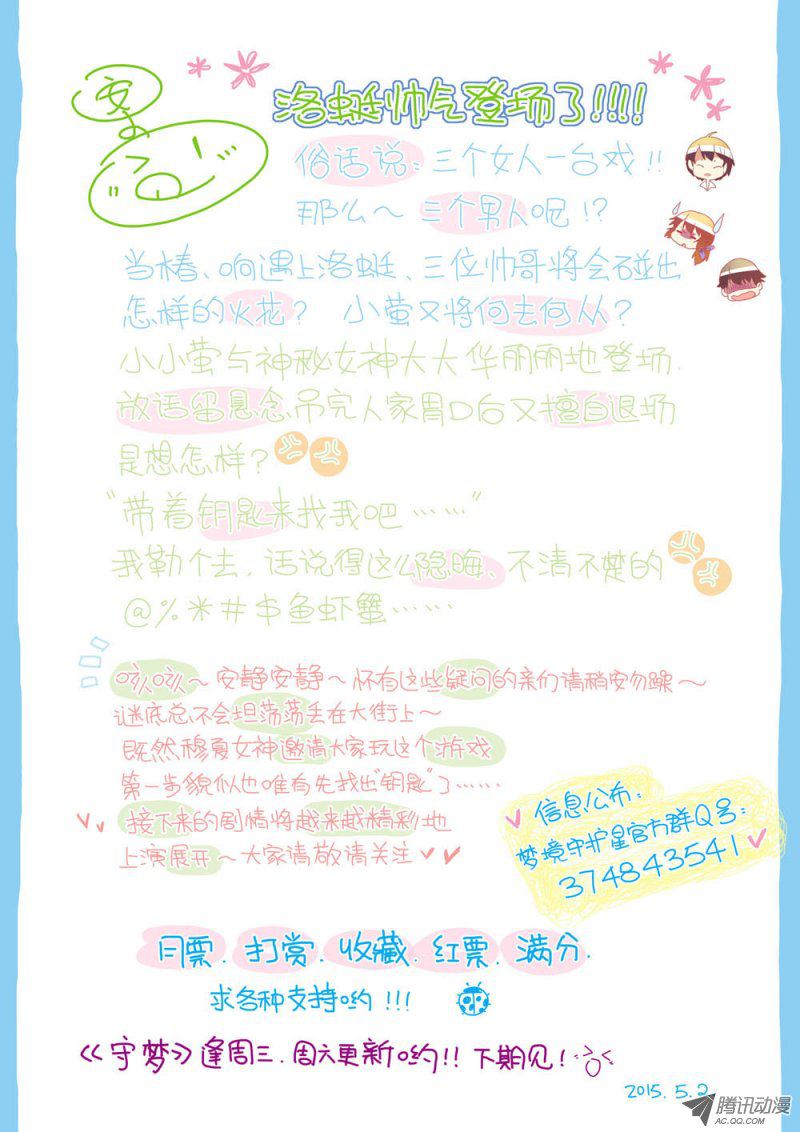 安
洛蜓帅气登场了!!!!
俗话说：三个女人一台戏!!
那么～三个男人呢!?
当椿、响遇上洛蜓、三位帅哥将会碰出
怎样的火花？小萤又将何去何从？
小小萤与神秘女神大大华丽丽地登场.
放话留悬念吊完人家胃口后又擅自退场
是想怎样？
“带着钥匙来找我吧……”
我勒个去，话说得这么隐晦、不清不楚的
@%*#串鱼虾蟹……
咳咳～安静安静～怀有这些疑问的亲们请稍安勿躁～
谜底总不会坦荡荡丢在大街上～
既然穆夏女神邀请大家玩这个游戏
第一步貌似也唯有先找出“钥匙”了……
接下来的剧情将越来越精彩地
上演展开～大家请敬请关注
信息公布：
梦境守护星官方群Q号：
374843541
月票.打赏.收藏.红票.满分.
求各种支持哟!!!
《守梦》逢周三.周六更新哟!!下期见!
2015.5.2
腾讯动漫
AC.QQ.COM